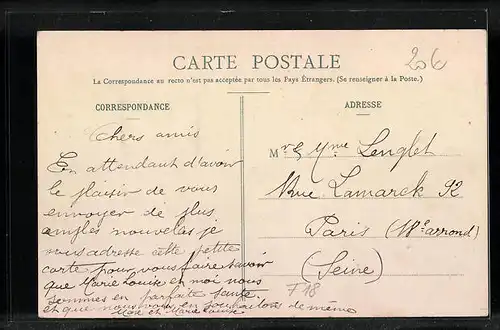 CARTE POSTALE
La Correspondance au recto n'est pas acceptée par tous les Pays Étrangers. (Se renseigner à la Poste.)
CORRESPONDANCE
ADRESSE
Chers amis
En attendant d'avoir
le plaisir de vous
envoyer de plus
amples nouvelles je
vous adresse cette petite
carte pour vous faire savoir
que Marie Louise et moi nous
sommes en parfaite santé
et que nous vous en souhaitons de même
et Marie Louise
Mr & Mme Lenglet
Rue Lamarck 92
Paris (18e arrond)
(Seine)
F18